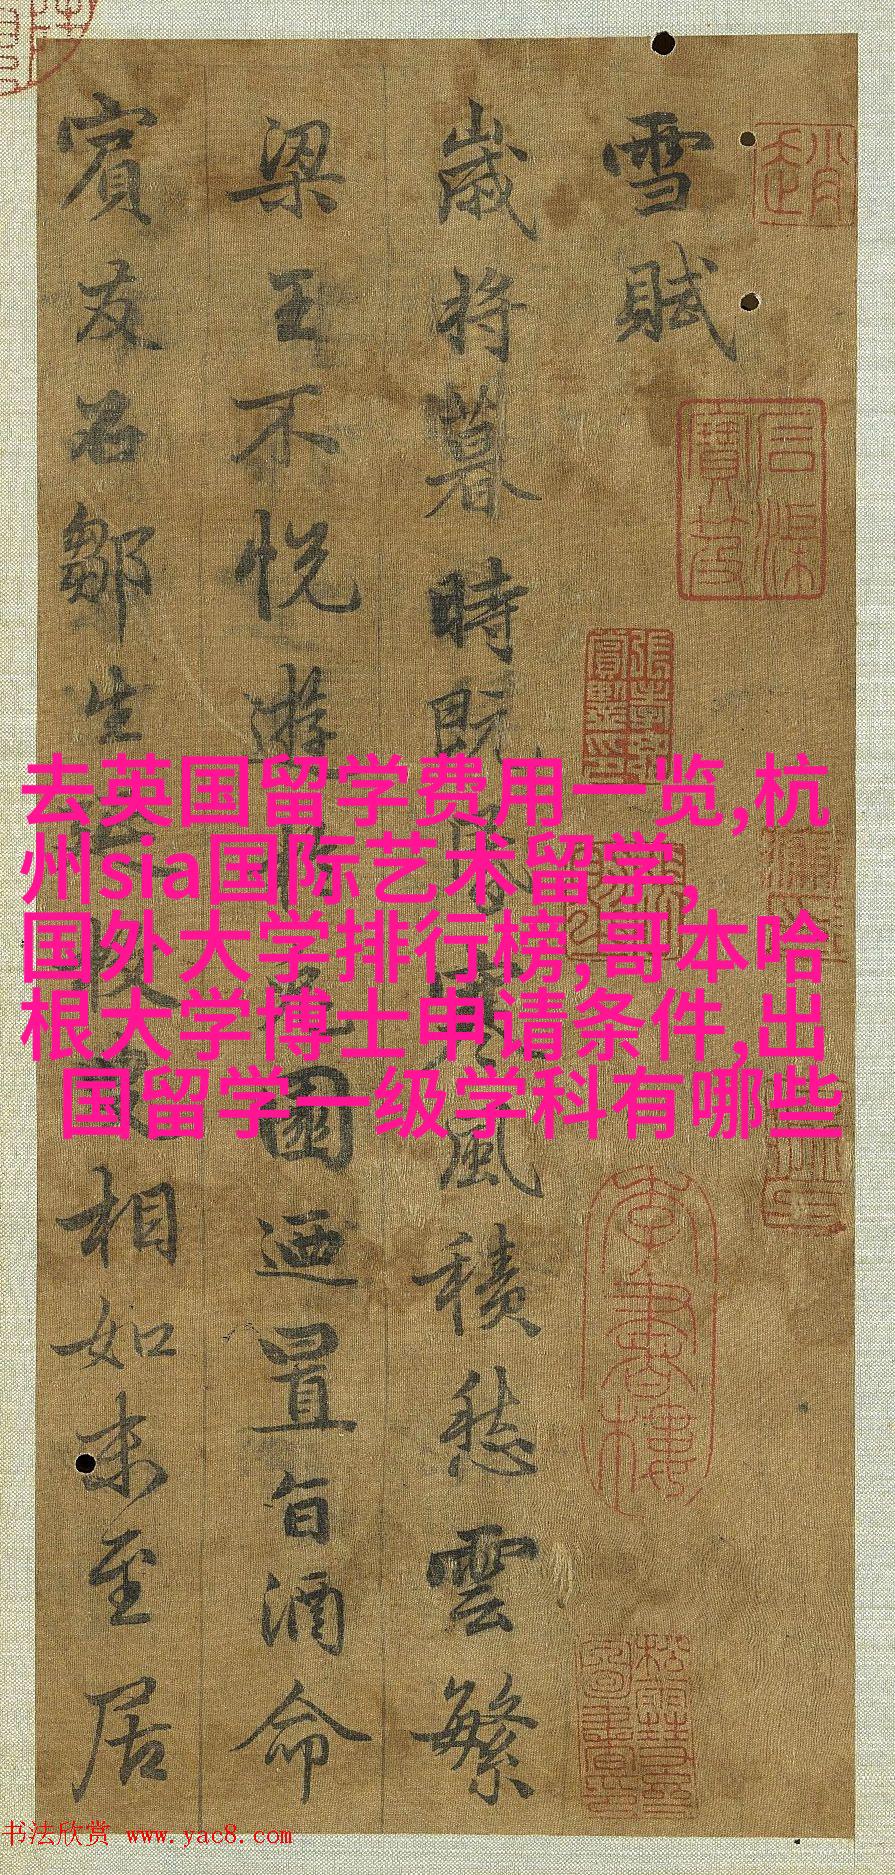 雪賦
歲將暮時既昏寒風積愁雲繁
梁王不悅遊於兔園迺置旨酒命
賓友召鄒生延枚叟相如末至居
去英国留学费用一览,杭
州sia国际艺术留学,
国外大学排行榜,哥本哈
根大学博士申请条件,出
国留学一级学科有哪些
书法欣赏 www.yac8.com